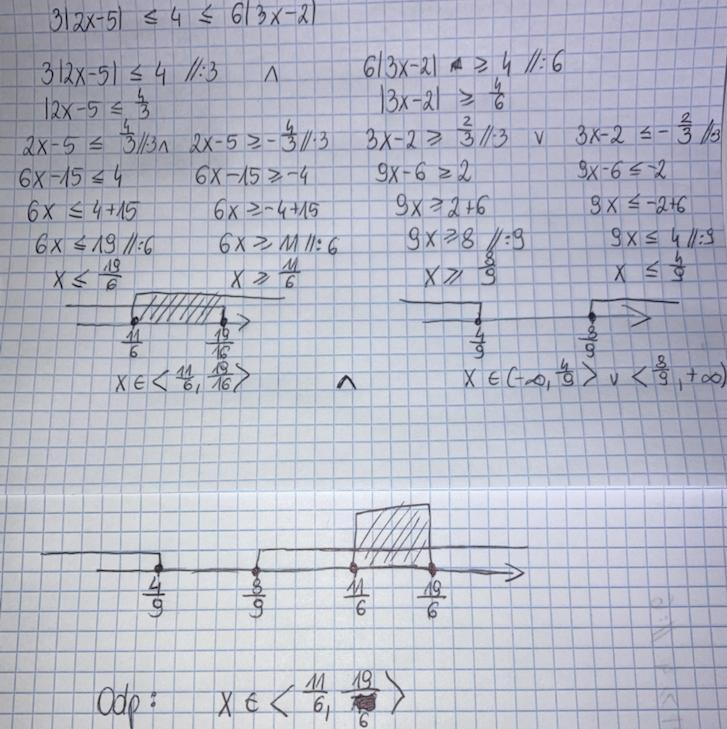 3|2x-5| ≤ 4 ≤ 6|3x-2|
3|2x-5| ≤ 4 //:3 ∧ 6|3x-2| ≥ 4 //:6
|2x-5 ≤ 4/3 |3x-2| ≥ 4/6
2x-5 ≤ 4/3 //·3 ∧ 2x-5 ≥ -4/3 //·3 3x-2 ≥ 2/3 //·3 ∨ 3x-2 ≤ -2/3 //3
6x-15 ≤ 4 6x-15 ≥ -4 9x-6 ≥ 2 9x-6 ≤ -2
6x ≤ 4+15 6x ≥ -4+15 9x ≥ 2+6 9x ≤ -2+6
6x ≤ 19 //:6 6x ≥ 11 //:6 9x ≥ 8 //:9 9x ≤ 4 //:9
x ≤ 19/6 x ≥ 11/6 x ≥ 8/9 x ≤ 4/9
11/6 19/16 4/9 8/9
x ∈ <11/6, 19/16> ∧ x ∈ (-∞, 4/9> ∨ <8/9, +∞)
4/9 8/9 11/6 19/6
Odp: x ∈ <11/6, 19/6>